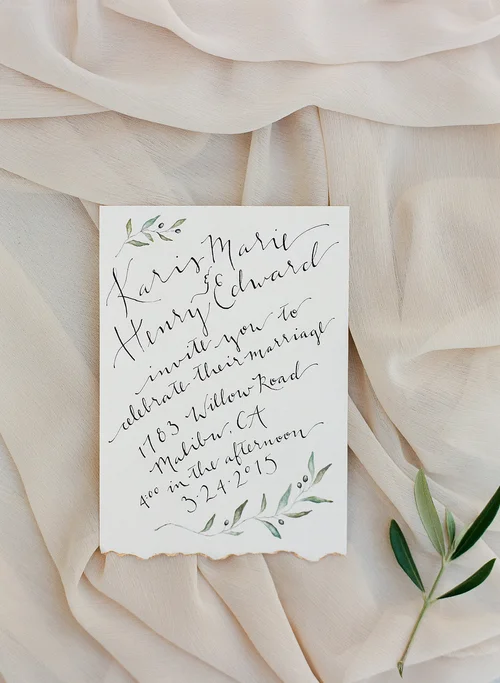 Karis Marie
&
Henry Edward
invite you to
celebrate their marriage
1783 Willow Road
Malibu, CA
4:00 in the afternoon
3·24·2015